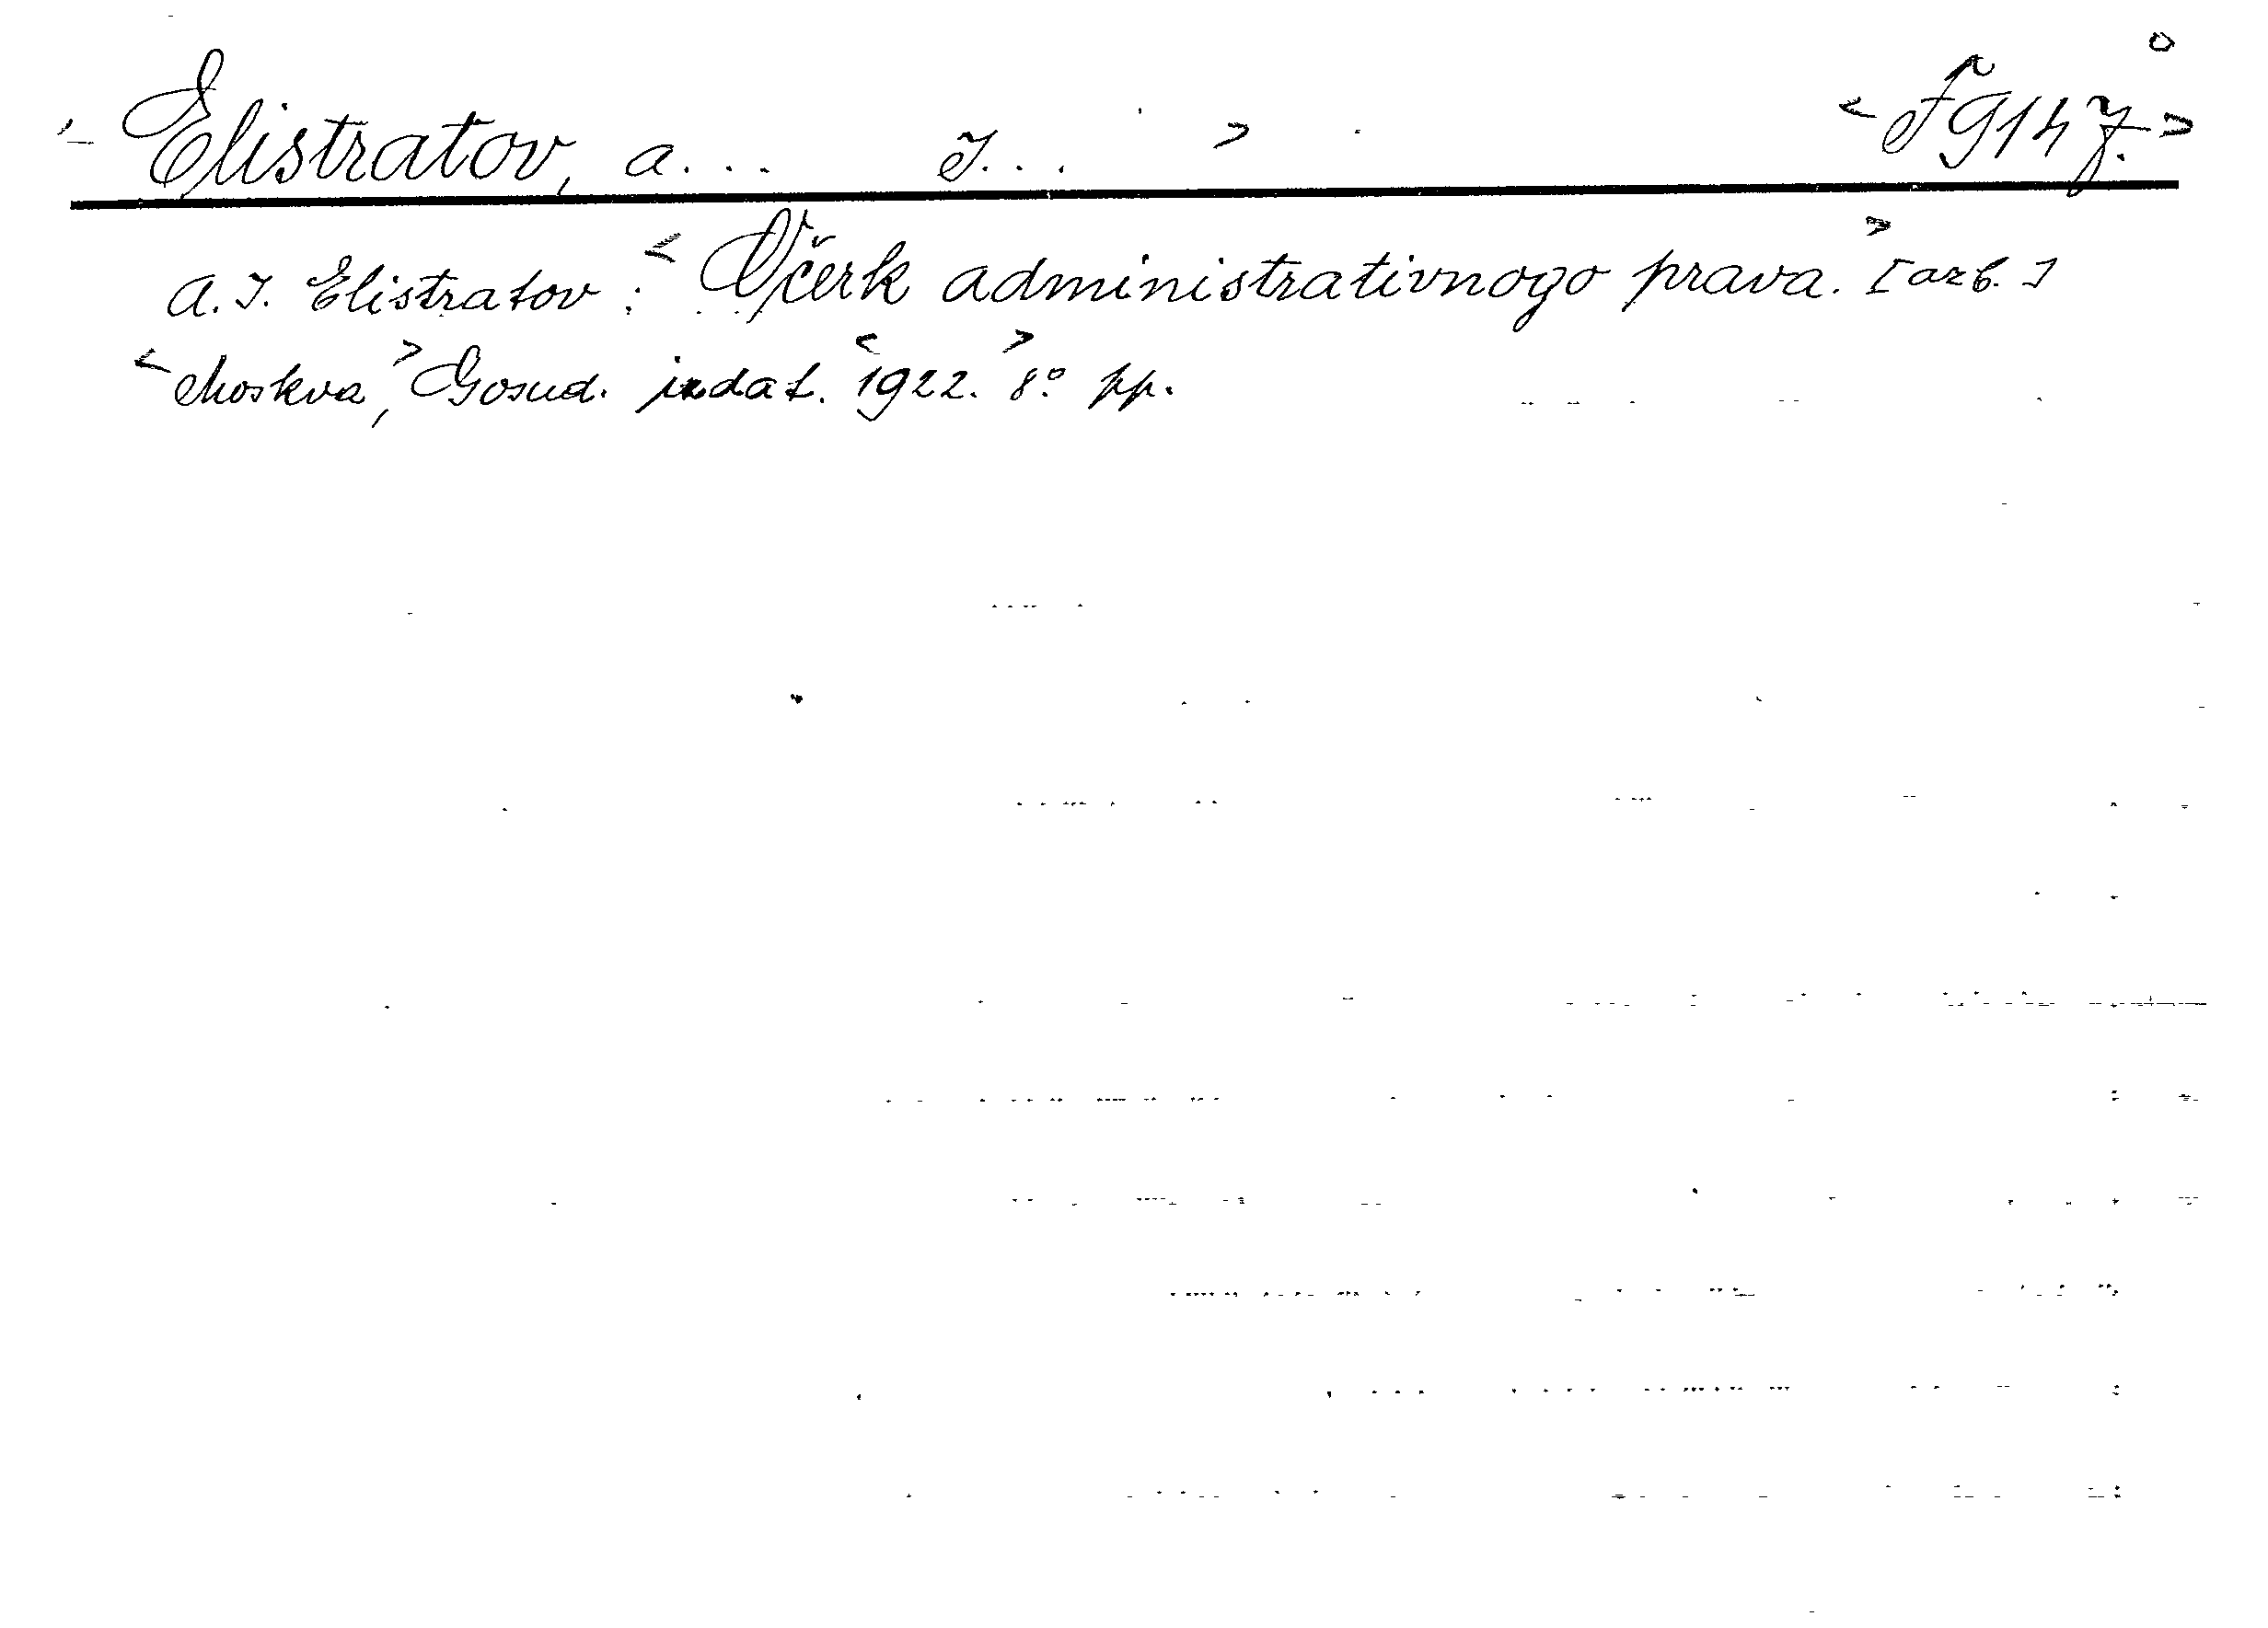 <Elistratov, A... I... > <F 9147.>
A. I. Elistratov: <Očerk administrativnogo prava.> [azb.]
<Moskva,> Gosud. izdat. <1922.> 8° pp.